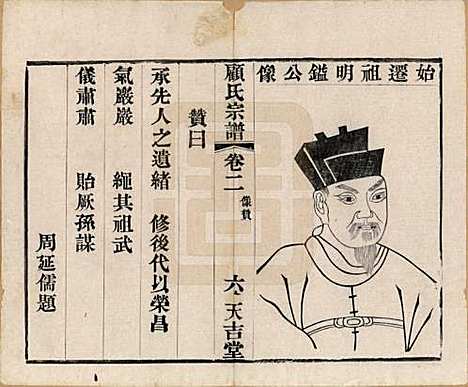 始遷祖明鑑公像
顧氏宗譜
卷二
像贊
六
天吉堂
贊曰
承先人之遺緒　修後代以榮昌
氣嚴嚴　繩其祖武
儀肅肅　貽厥孫謀
周延儒題